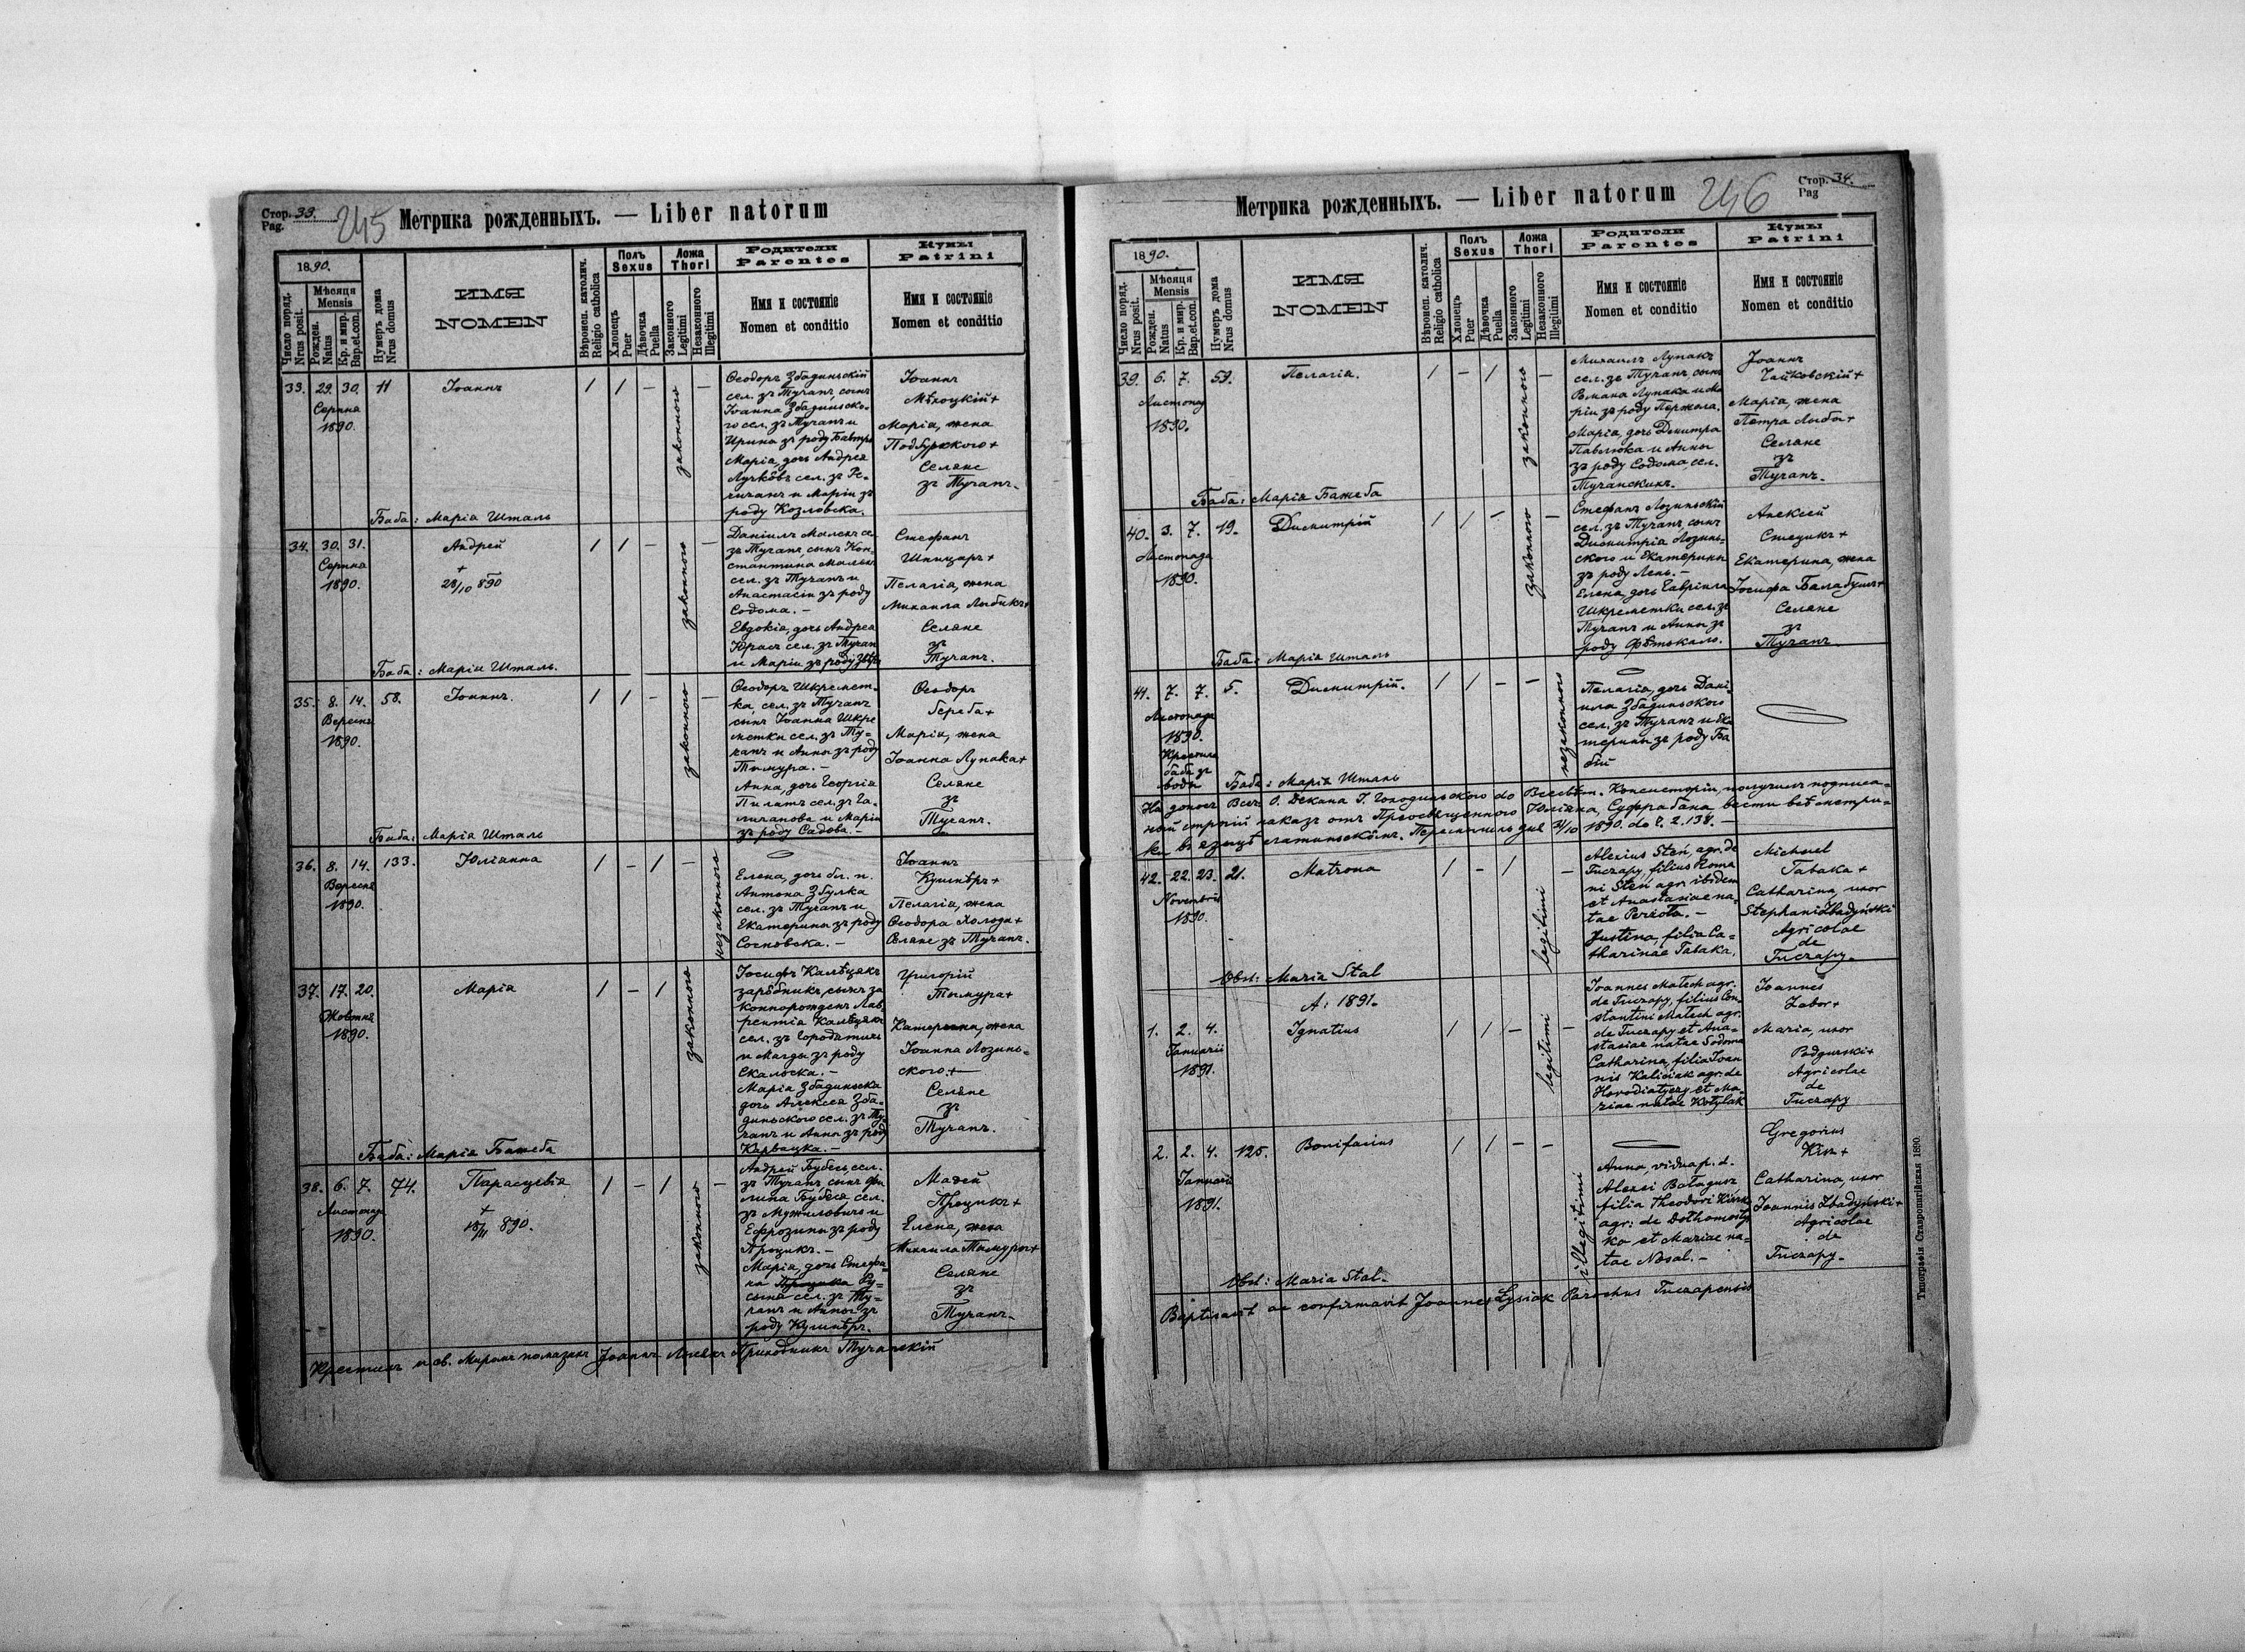 Стор. 33.
Pag.
245
Метрика рожденныхъ. — Liber natorum
1890.
Число поряд.
Nrus posit.
Мѣсяця
Mensis
Рожден.
Natus
Кр. и мир.
Bap.et.con.
Нумеръ дома
Nrus domus
ИМЯ
NOMEN
Вѣроисп. католич.
Religio catholica
Полъ
Sexus
Хлопецъ
Puer
Дѣвочка
Puella
Ложа
Thori
Законного
Legitimi
Незаконного
Illegitimi
Родители
Parentes
Имя и состоянiе
Nomen et conditio
Кумы
Patrini
Имя и состоянiе
Nomen et conditio
33. 29. 30. 11 Іоаннъ / / — законного —
Серпня
1890.
Ѳеодоръ Збадиньскій
сел. зъ Тучапъ, сынъ
Іоанна Збадиньско-
го сел. зъ Тучапъ и
Ирина зъ роду
Марія, дочь Андрея
Лучкôвъ сел. зъ Ре-
чичанъ и Маріи зъ
роду Козловска.
Іоаннъ
Мѣхоцкій +
Марія, жена
Подгурского +
Селяне
зъ Тучапъ.
Баба: Марія Шталь
34. 30. 31. Андрей / / — законного —
Серпня
1890.
+
28/10 890
Даніилъ Малехъ се.
зъ Тучапъ, сынъ Кон-
стантина Малехъ
сел. зъ Тучапъ и
Анастасіи зъ роду
Содома. —
Евдокія, дочь Андрея
Юрасъ сел. зъ Тучап
и Маріи зъ роду
Стефанъ
Шпицаръ +
Пелагія, жена
Михаила Лыбикъ +
Селяне
зъ
Тучапъ.
Баба: Марія Шталь.
35. 8. 14. 58. Іоаннъ. / / — законного —
Вересня
1890.
Ѳеодоръ Шкремет-
ка, сел. зъ Тучапъ
сынъ Іоанна Шкре
метка сел. зъ Ту-
чапъ и Анны зъ роду
Тымура. —
Анна, дочь Георгія
Пилатъ сел. зъ Га-
личанова и Маріи
зъ роду Садова. —
Ѳеодоръ
береба +
Марія, жена
Іоанна Лупака +
Селяне
зъ
Тучапъ.
Баба: Марія Шталь
36. 8. 14. 133. Юліанна / — / — незаконного
Вересня
1890.
Елена, дочь бл. п.
Антона Збулка
сел. зъ Тучапъ и
Екатерины зъ роду
Сосновска. —
Іоаннъ
Кушнѣръ +
Пелагія, жена
Ѳеодора Холода +
Селяне зъ Тучапъ.
37. 17. 20. Марія / — / законного
Жовтня
1890.
Іосифъ Калѣцякъ
зарôбникъ, сынъ за
коннорожденъ Лав
рентія Калѣцякъ
сел. зъ Городятичъ
и Магды зъ роду
Скалоска. —
Марія Збадиньска
дочь Алексея Зба-
диньского сел. зъ Ту-
чапъ и Анны зъ роду
Карвацка. —
Григорій
Тымура +
Катерина, жена
Іоанна Лозинь-
ского. +
Селяне
зъ
Тучапъ.
Баба: Марія Бажеба
38. 6. 7. 74. Парасцевія / — / законного —
Листопад
1890.
+
18/11 890.
Андрей Бубесъ, сел.
зъ Тучапъ, сынъ Фи
липа Бубеса сел.
зъ Мужиловичъ и
Ефрозины зъ роду
Процикъ. —
Марія, дочь Стефа-
на Процика Лу-
сына сел. зъ Ту-
чапъ и Анны зъ
роду Кушнѣръ.
Матей
Процикъ +
Елена, жена
Михаила Тымуры +
Селяне
зъ
Тучапъ.
Крестилъ и св. Миромъ помазалъ Іоаннъ Лысякъ Приходникъ Тучапскій
Метрика рожденныхъ. — Liber natorum
246
Стор. 34.
Pag
1890.
Число поряд.
Nrus posit.
Мѣсяця
Mensis
Рожден.
Natus
Кр. и мир.
Bap.et.con.
Нумеръ дома
Nrus domus
ИМЯ
NOMEN
Вѣроисп. католич.
Religio catholica
Полъ
Sexus
Хлопецъ
Puer
Дѣвочка
Puella
Ложа
Thori
Законного
Legitimi
Незаконного
Illegitimi
Родители
Parentes
Имя и состоянiе
Nomen et conditio
Кумы
Patrini
Имя и состоянiе
Nomen et conditio
39. 6. 7. 59. Пелагія. / — / законного —
Листопад
1890.
Михаилъ Лупакъ
сел. зъ Тучапъ, сынъ
Романа Лупака и Ма
ріи зъ роду Пержола.
Марія, дочь Димитра
Павлюка и Анны
зъ роду Содома сел.
Тучапскихъ.
Іоаннъ
Чайковскій +
Марія, жена
Петра Лыба +
Селяне
зъ
Тучапъ.
Баба: Марія Бажеба
40. 3. 7. 19. Димитрій / / — законного —
Листопада
1890.
Стефанъ Лозиньскій
сел. зъ Тучапъ, сынъ
Димитрія Лозинь-
ского и Екатерины
зъ роду Лень. —
Елена, дочь Гавріила
Шкреметки сел. зъ
Тучапъ и Анны зъ
роду Фѣтькало.
Алексей
Стецикъ +
Екатерина, жена
Іосифа Балабушъ +
Селяне
зъ
Тучапъ
Баба: Марія Шталь
41. 7. 7. 5. Димитрій. / / — — незаконного
Листопада
1890.
Крестила
баба зъ
воды
Пелагія, дочь Дані-
ила Збадиньского
сел. зъ Тучапъ и Ека
терины зъ роду Ба
бій
Баба: Марія Шталь
На доносъ Всеч. О. Декана Г. Голодиньского до Всесвѣт. Консисторіи, получилъ подписа-
ный строгій наказъ отъ Преосвященного Юліана, Суффрагана, вести всѣ метри-
ки въ языцѣ латиньскôмъ. Перемышль дня 21/10 1890. do č. 2.138. —
42. 22. 23. 21. Matrona / — / legitimi —
Novembris
1890.
Alexius Steń, agr. de
Tuczapy, filius Roma
ni Steń agr. ibidem
et Anastasiae na-
tae Perżoła. —
Justina, filia Ca-
tharinae Tabaka,
Michael
Tabaka +
Catharina, uxor
Stephani Zbadyński
Agricolae
de
Tuczapy.
Obst: Maria Stal
A: 1891.
1. 2. 4. Ignatius / / — legitimi —
Januarii
1891.
Joannes Małech agr.
de Tuczapy, filius Con-
stantini Małech agr.
de Tuczapy et Ana-
stasiae natae Sodoma
Catharina, filia Joan
nis Kaliciak agr. de
Horodiatyczy et Ma-
riae natae Kotylak
Joannes
Zabor +
Maria, uxor
Podgurski +
Agricolae
de
Tuczapy
2. 2. 4. 125. Bonifacius / / — — illegitimi
Januarii
1891.
Anna, vidua p. d.
Alexei Bałagusz
filia Theodori Kisz
agr: de Dołhomosty
ko et Mariae na-
tae Nosal. —
Gregorius
Kisz +
Catharina, uxor
Joannis Zbadyński +
Agricolae
de
Tuczapy.
Obst: Maria Stal.
Baptisavit ac confirmavit Joannes Łysiak Parochus Tuczapensis
Типографія Ставропигійская 1890.